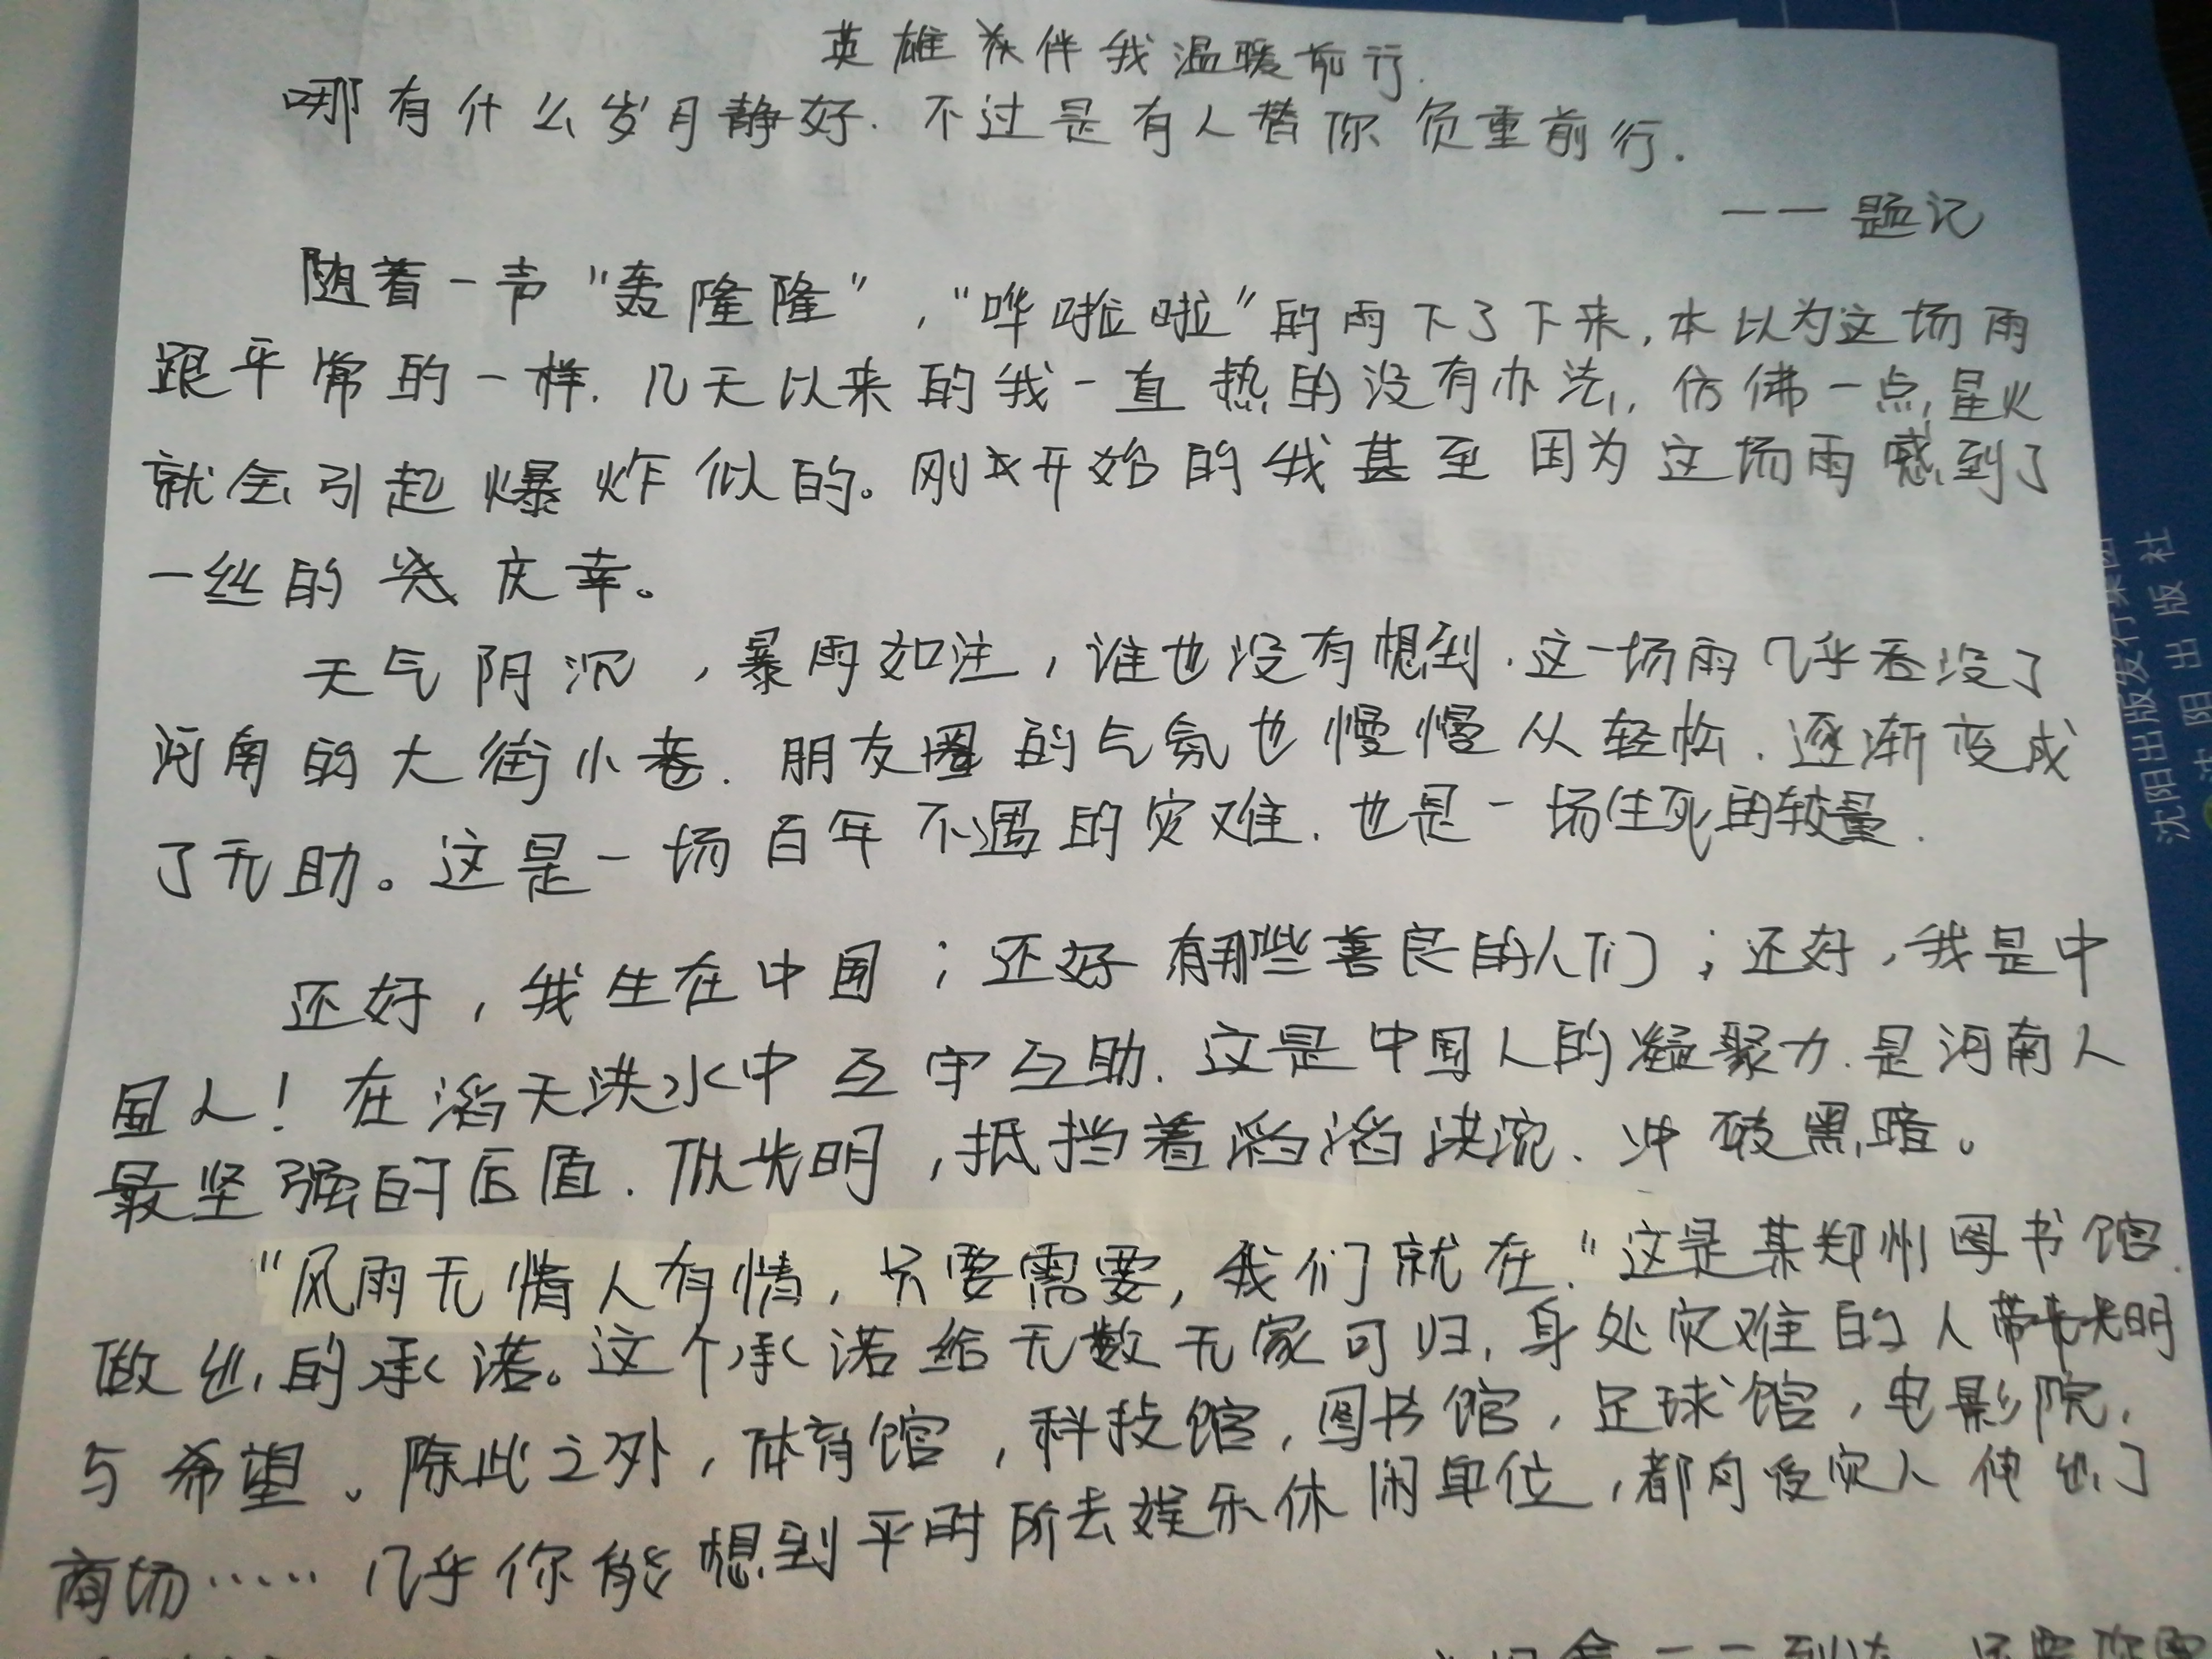 英雄伴我温暖前行.
哪有什么岁月静好.不过是有人替你负重前行.
——题记
随着一声"轰隆隆","哗啦啦"的雨下了下来,本以为这场雨
跟平常的一样.几天以来的我一直热的没有办法,仿佛一点星火
就会引起爆炸似的。刚开始的我甚至因为这场雨感到了
一丝的庆幸。
天气阴沉,暴雨如注,谁也没有想到.这一场雨几乎吞没了
河南的大街小巷.朋友圈的气氛也慢慢从轻松.逐渐变成
了无助。这是一场百年不遇的灾难.也是一场生死的较量.
还好,我生在中国;还好有那些善良的人们;还好,我是中
国人!在滔天洪水中互守互助.这是中国人的凝聚力.是河南人
最坚强的后盾.似光明,抵挡着滔滔洪流、冲破黑暗。
"风雨无情人有情,只要需要,我们就在."这是某郑州图书馆
做出的承诺。这个承诺给无数无家可归,身处灾难的人带来光明
与希望。除此之外,体育馆,科技馆,图书馆,足球馆,电影院,
商场……几乎你能想到平时所去娱乐休闲单位,都向受灾人使他们
沈阳出版发行集团
沈阳出版社